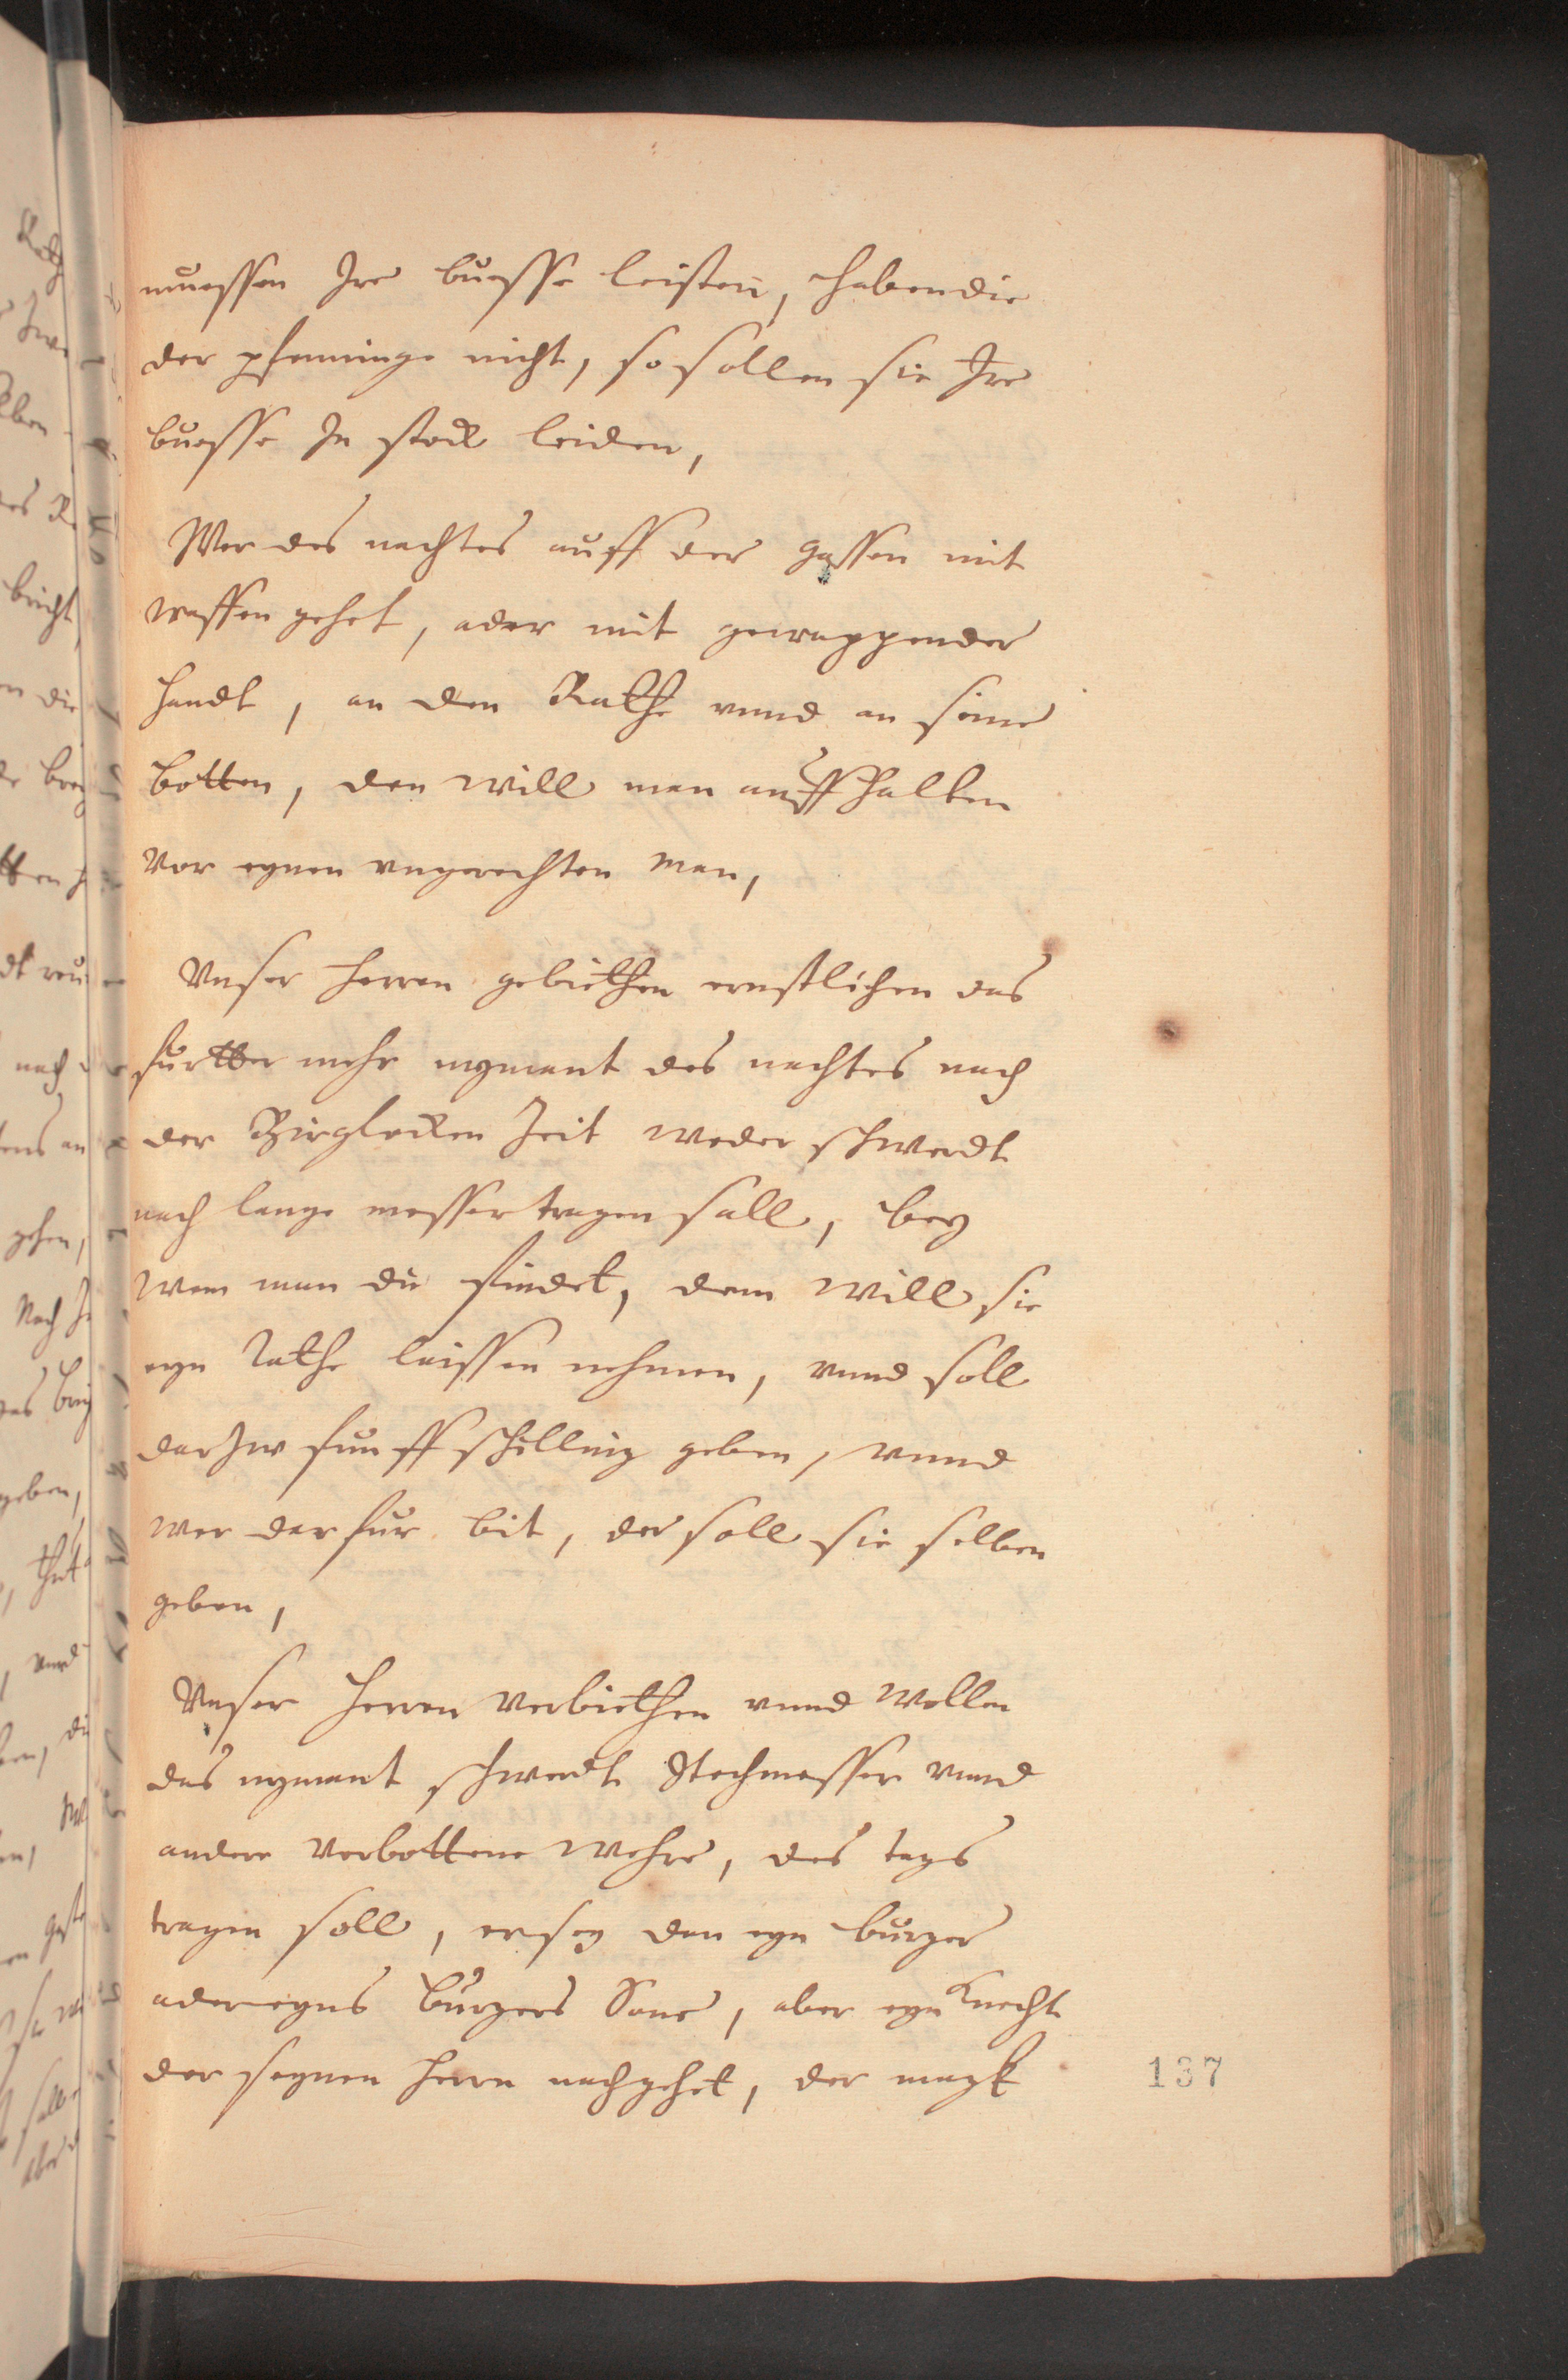 muessen Ire buesse leisten, haben die
der pfenninge nicht, so sollen sie Ire
buesse In stock leiden,
Wer des nachtes auff der gassen mit
waffen gehet, ader mit gewappender
handt, an den Rathe vnnd an seine
botten, den will man auffhalten
vor eynen vngerechten man,
Vnser herren gebiethen ernstlichen das
furtter mehr nymant des nachtes nach
der Birglocken Zeit weder schwerdt
nach lange messer tragen sall, bey
wem man die findet, dem will sie
eyn Rathe laissen nehmen, vnnd soll
darzw funff schilling geben, vnnd
wer darfur bit, der soll sie selben
geben,
Vnser herren verbiethen vnnd wollen
das nymant schwerdt Stechmesser vnnd
andere verbottene wehre, des tags
tragen soll, er sey dan eyn burger
ader eyns burgers Sone, aber eyn knecht
der seynen herrn nachgehet, der magk
137